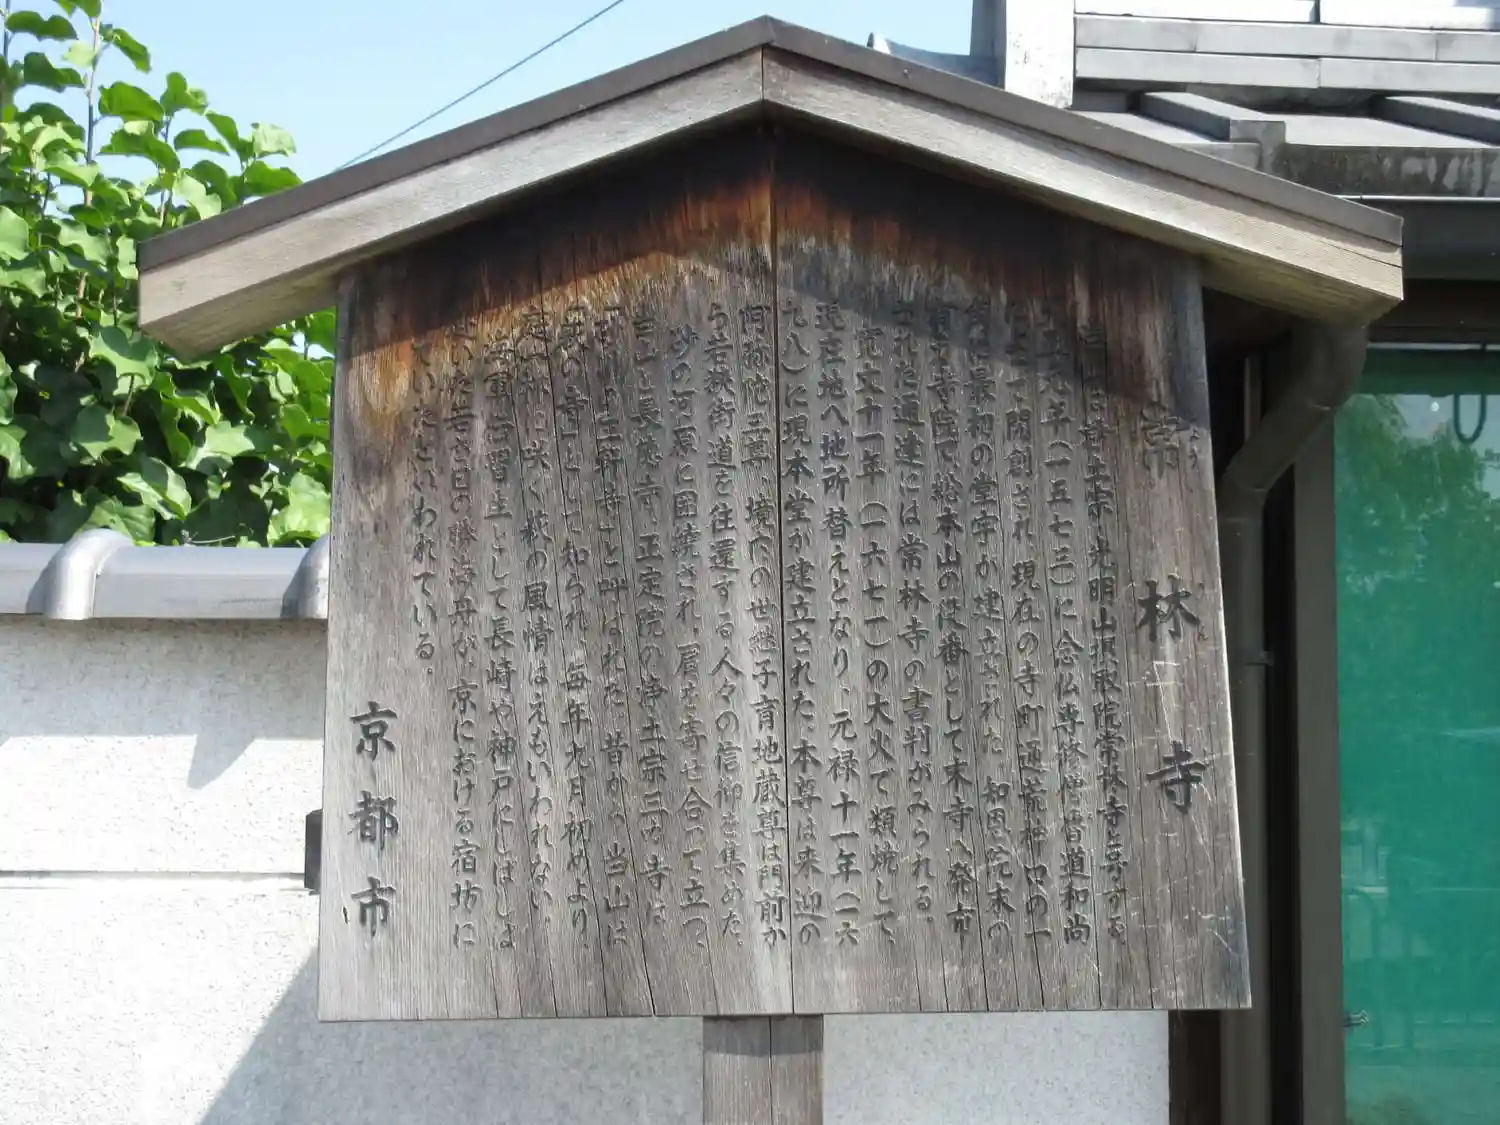 常林寺
当山は浄土宗、光明山摂取院常林寺と号する。
元年（一五七三）に念仏専修僧魯道和尚
によって開創され、現在の寺町通荒神口の一
に最初の堂宇が建立された。知恩院末の
有力寺院で、総本山の役番として末寺へ発布
された通達には常林寺の書判がみられる。
寛文十一年（一六七一）の大火で類焼して、
現在地へ地所替えとなり、元禄十一年（一六
九八）に現本堂が建立された。本尊は来迎の
阿弥陀三尊、境内の世継子育地蔵尊は門前か
ら若狭街道を往還する人々の信仰を集めた。
砂の河原に囲繞され、眉を寄せ合って立つ、
当山と長徳寺、正定院の浄土宗三カ寺は
「砂川の三軒寺」と呼ばれた。昔から当山は
「萩の寺」として知られ、毎年九月初めより、
庭一杯に咲く萩の風情はえもいわれない。
海軍伝習生として長崎や神戸にしばしば
赴いた若き日の勝海舟が、京における宿坊に
していたといわれている。
京都市